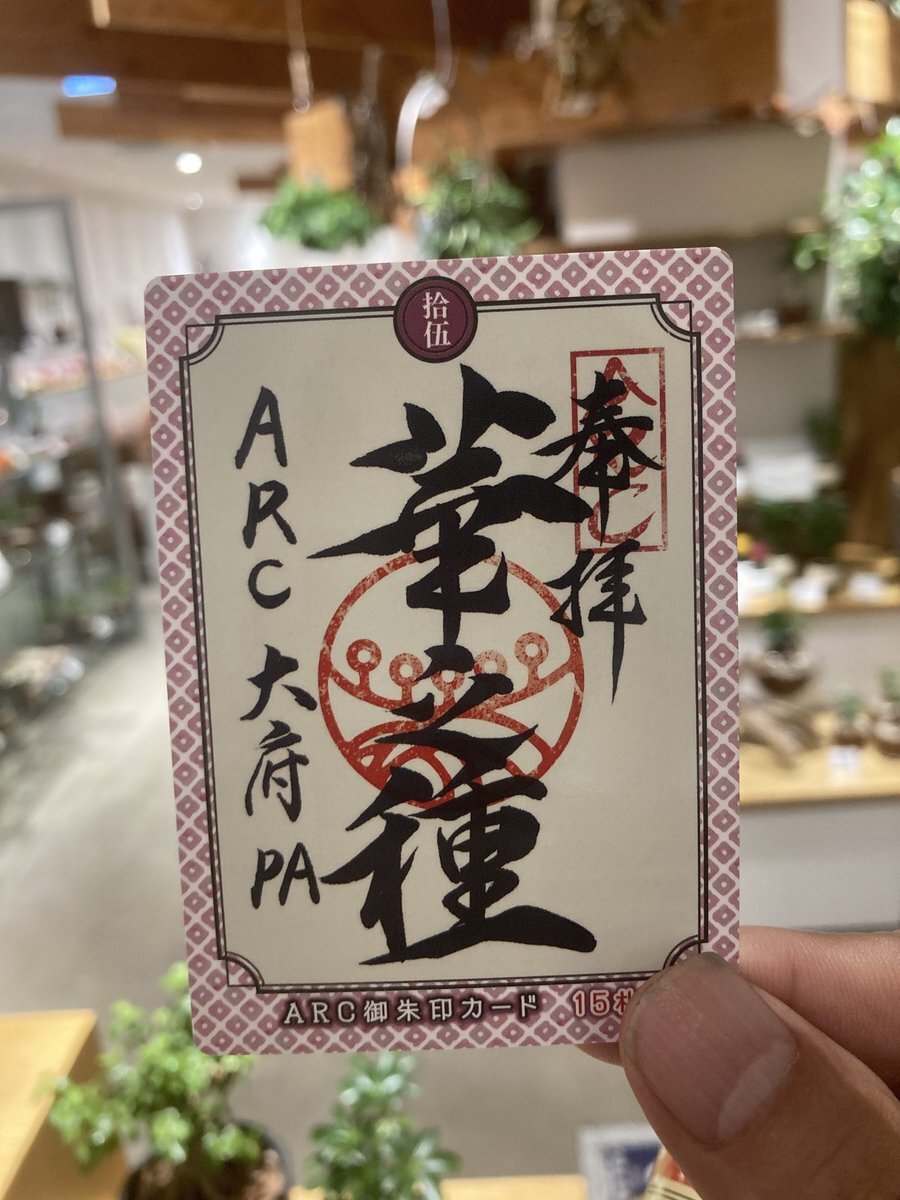 拾伍
奉拝
華之種
ARC 大府 PA
ARC御朱印カード 15